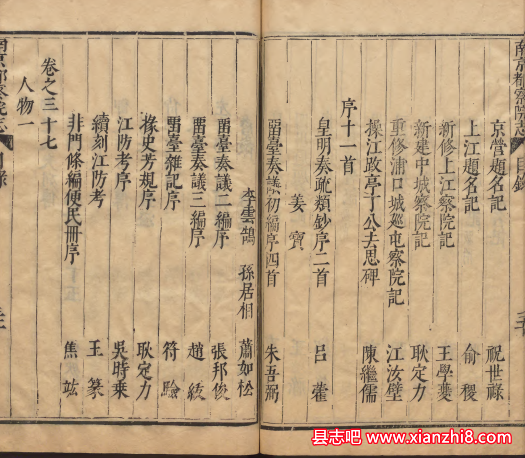 南京都察院志 目錄
京營題名記 祝世祿
上江題名記 俞稷
新修上江察院記 王學夔
新建中城察院記 耿定力
重修浦口城巡屯察院記 江汝璧
操江政亭十公去思碑 陳繼儒
序十一首
皇明奏疏類鈔序二首
姜寶 吕藿
留臺奏議初編序四首 朱吾弼
李雲鵠 孫居相 蕭如松
留臺奏議二編序 張邦俊
留臺奏議三編序 趙紱
留臺雜記序 符驗
掾史芳規序 耿定力
江防考序 吳時來
續刻江防考 王篆
非門條編便民冊序 焦竑
卷之三十七
人物一
南京都察院志 目錄
县志吧 www.xianzhi8.com